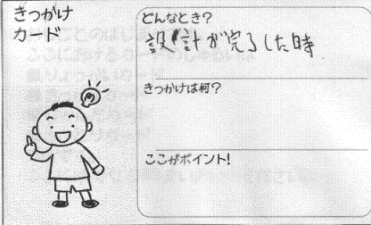 きっかけ
カード
どんなとき?
設計が完了した時
きっかけは何?
ここがポイント!